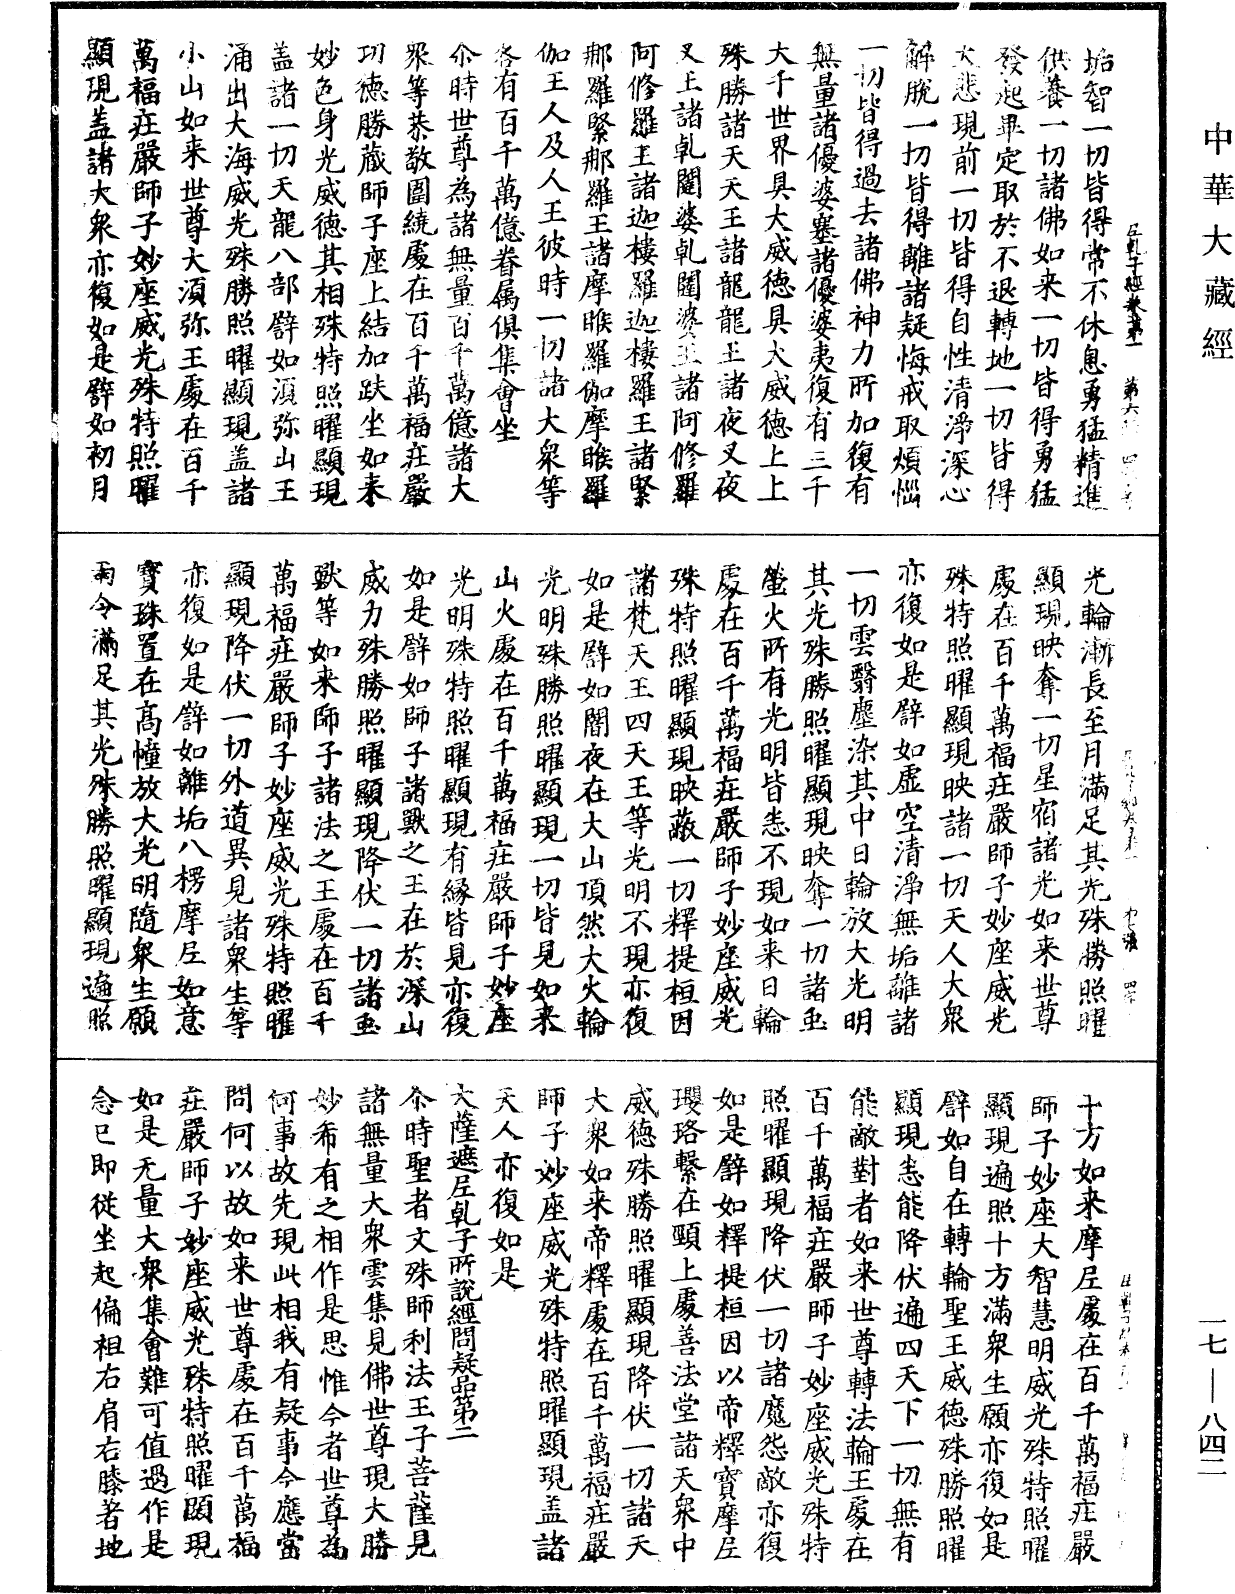 中華大藏經
垢智一切皆得常不休息勇猛精進
供養一切諸佛如来一切皆得勇猛
發起畢定取於不退轉地一切皆得
大悲現前一切皆得自性清淨深心
解脫一切皆得離諸疑悔戒取煩惱
一切皆得過去諸佛神力所加復有
無量諸優婆塞諸優婆夷復有三千
大千世界具大威德具大威德上上
殊勝諸天天王諸龍龍王諸夜叉夜
叉王諸乾闥婆乾闥婆王諸阿修羅
阿修羅王諸迦樓羅迦樓羅王諸緊
那羅緊那羅王諸摩睺羅伽摩睺羅
伽王人及人王彼時一切諸大衆等
各有百千萬億眷属俱集會坐
尒時世尊為諸無量百千萬億諸大
衆等恭敬圍繞處在百千萬福莊嚴
功德勝藏師子座上結加趺坐如来
妙色身光威德其相殊特照曜顯現
盖諸一切天龍八部譬如湏弥山王
涌出大海威光殊勝照曜顯現盖諸
小山如来世尊大湏弥王處在百千
萬福莊嚴師子妙座威光殊特照曜
顯現盖諸大衆亦復如是譬如初月
光輪漸長至月滿足其光殊勝照曜
顯現映奪一切星宿諸光如来世尊
處在百千萬福莊嚴師子妙座威光
殊特照曜顯現映諸一切天人大衆
亦復如是譬如虛空清淨無垢離諸
一切雲翳塵染其中日輪放大光明
其光殊勝照曜顯現映奪一切諸虫
螢火所有光明皆悉不現如来日輪
處在百千萬福莊嚴師子妙座威光
殊特照曜顯現映蔽一切釋提桓因
諸梵天王四天王等光明不現亦復
如是譬如闇夜在大山頂然大火輪
光明殊勝照曜顯現一切皆見如来
山火處在百千萬福莊嚴師子妙座
光明殊特照曜顯現有緣皆見亦復
如是譬如師子諸獸之王在於深山
威力殊勝照曜顯現降伏一切諸虫
獸等如来師子諸法之王處在百千
萬福莊嚴師子妙座威光殊特照曜
顯現降伏一切外道異見諸衆生等
亦復如是譬如離垢八楞摩尼如意
寶珠置在髙幢放大光明隨衆生願
雨令滿足其光殊勝照曜顯現遍照
十方如来摩尼處在百千萬福莊嚴
師子妙座大智慧明威光殊特照曜
顯現遍照十方滿衆生願亦復如是
譬如自在轉輪聖王威德殊勝照曜
顯現悉能降伏遍四天下一切無有
能敵對者如来世尊轉法輪王處在
百千萬福莊嚴師子妙座威光殊特
照曜顯現降伏一切諸魔怨敵亦復
如是譬如釋提桓因以帝釋寶摩尼
瓔珞繫在頸上處善法堂諸天衆中
威德殊勝照曜顯現降伏一切諸天
大衆如来帝釋處在百千萬福莊嚴
師子妙座威光殊特照曜顯現盖諸
天人亦復如是
大薩遮尼乾子所說經問疑品第二
尒時聖者文殊師利法王子菩薩見
諸無量大衆雲集見佛世尊現大勝
妙希有之相作是思惟今者世尊為
何事故先現此相我有疑事今應當
問何以故如来世尊處在百千萬福
莊嚴師子妙座威光殊特照曜顯現
如是无量大衆集會難可值遇作是
念已即從坐起偏袒右肩右膝著地
一七—八四二